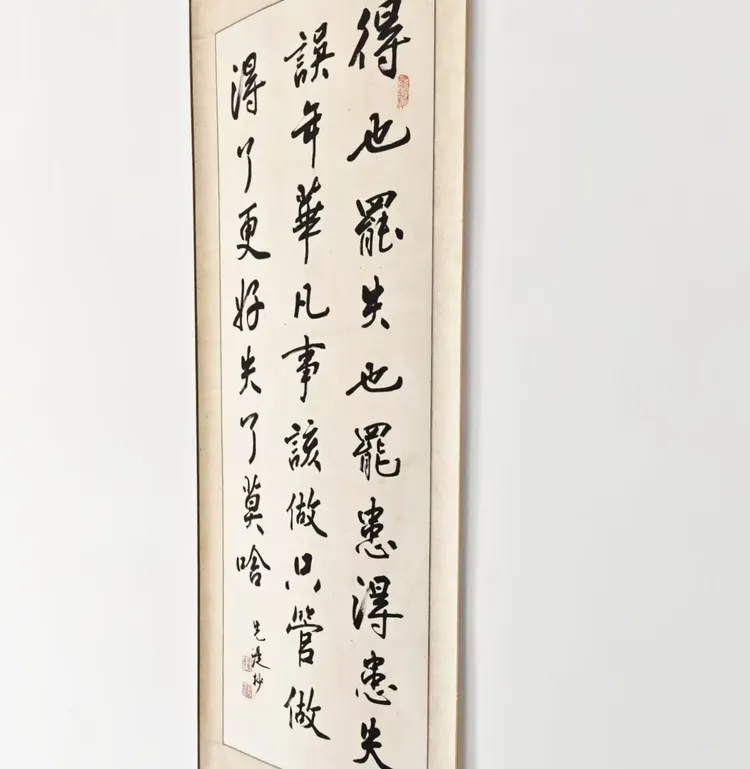 得也罷失也罷患得患失
誤年華凡事該做只管做
得了更好失了莫啥
先 抄